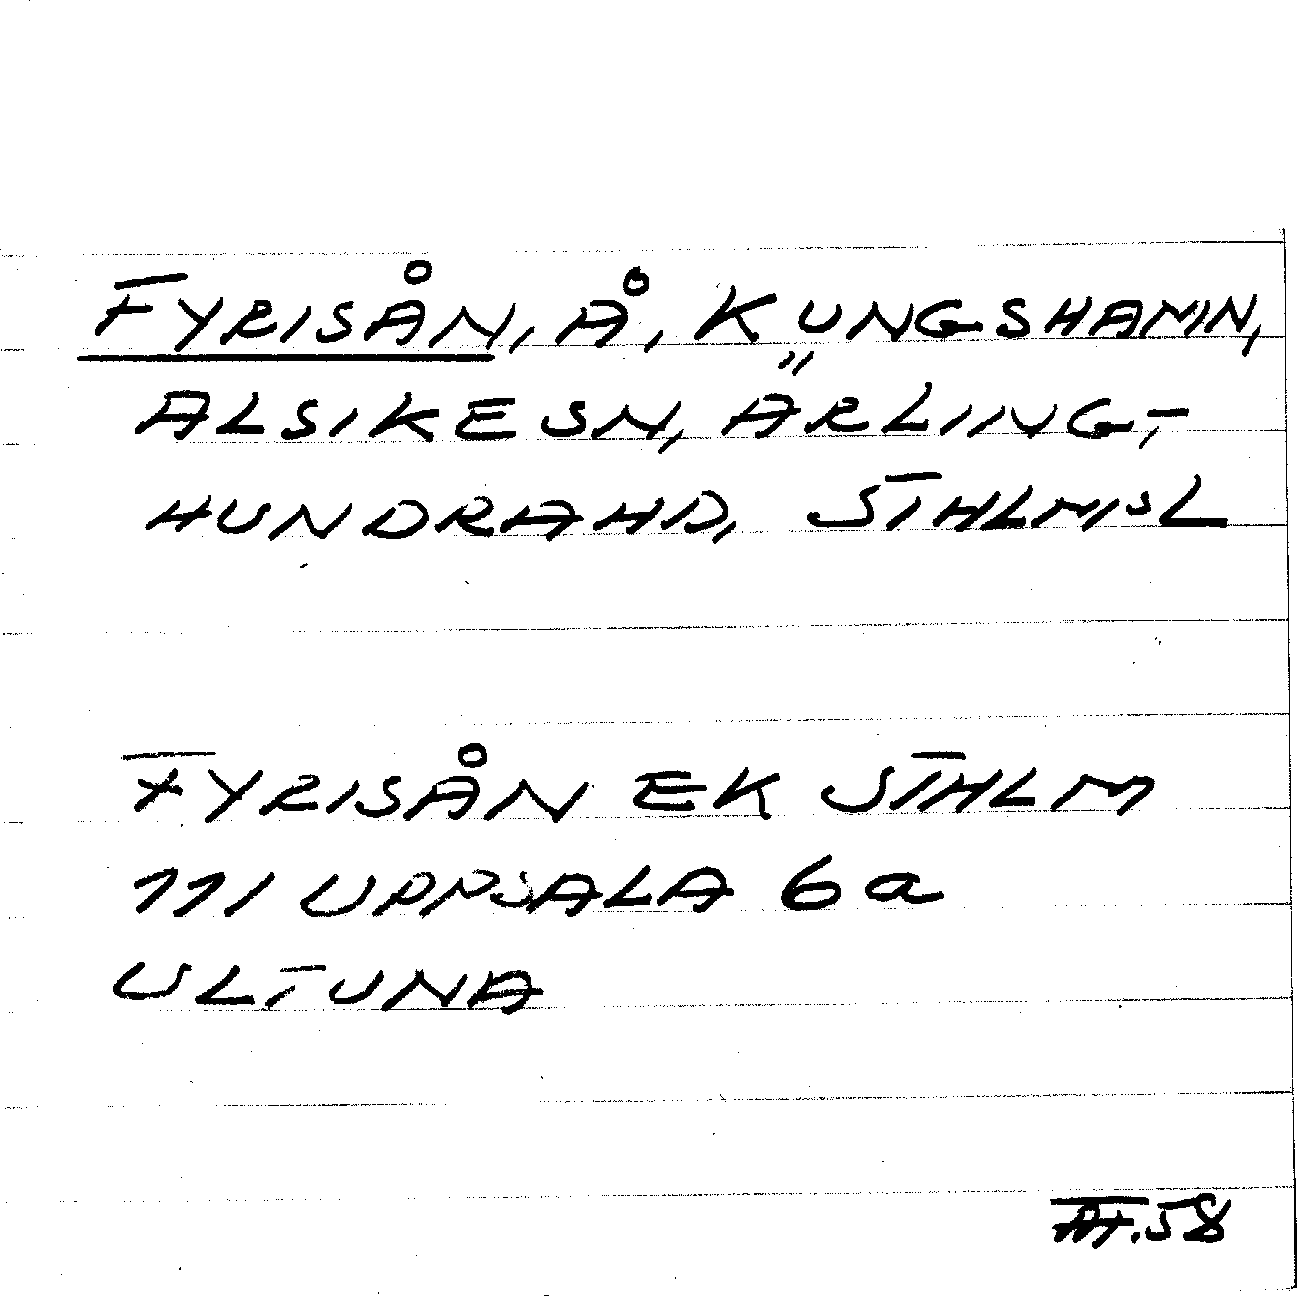 FYRISÅN, Å, KUNGSHAMN,
ALSIKE SN, ÄRLING-
HUNDRA HD, STHLMS L
FYRISÅN EK STHLM
111 UPPSALA 6a
ULTUNA